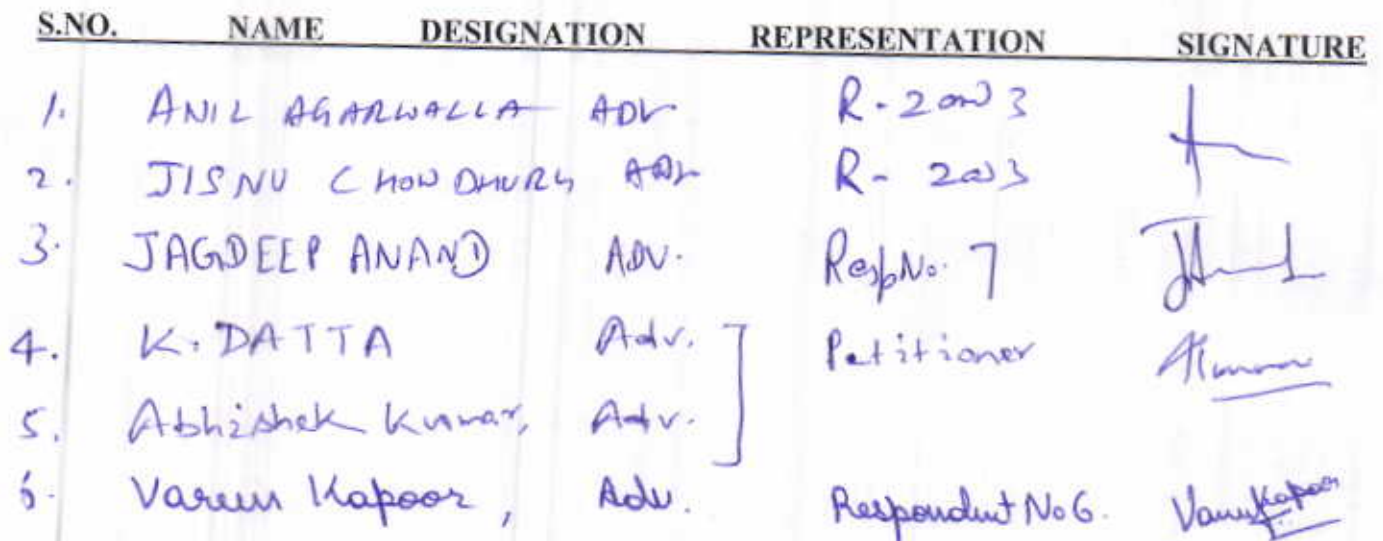 S.NO. NAME DESIGNATION REPRESENTATION SIGNATURE
1. ANIL AGARWALLA ADV R-2 and 3
2. JISNU CHOWDHURY ADV R-2 and 3
3. JAGDEEP ANAND ADV. Resp No. 7
4. K. DATTA Adv. Petitioner
5. Abhishek Kumar, Adv.
6. Varun Kapoor, Adv. Respondent No 6. Varun Kapoor